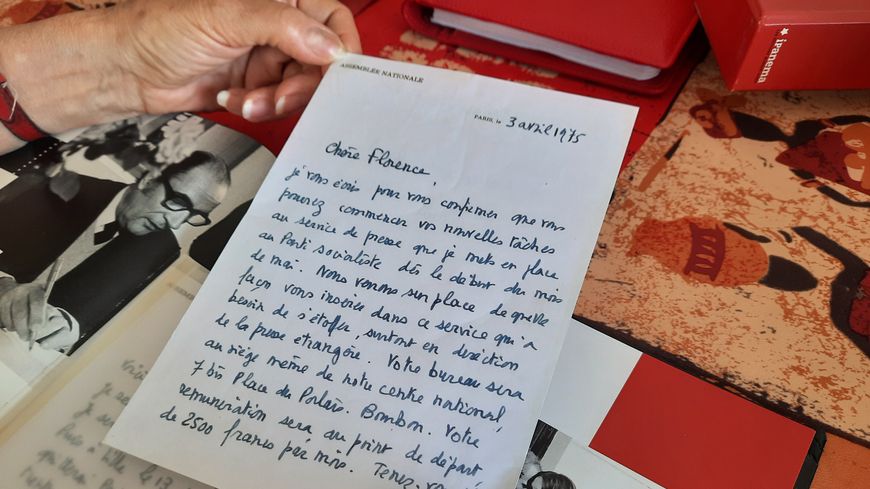 ASSEMBLÉE NATIONALE
PARIS, le 3 avril 1975
Chère Florence,
je vous écris pour vous confirmer que vous
pourrez commencer vos nouvelles tâches
au service de presse que je mets en place
au Parti socialiste dès le début du mois
de mai. Nous verrons sur place de quelle
façon vous insérer dans ce service qui a
besoin de s'étoffer, surtout en direction
de la presse étrangère. Votre bureau sera
au siège même de notre centre national,
7 bis Place du Palais. Bourbon. Votre
rémunération sera au point de départ
de 2500 francs par mois. Tenez-
ipanema